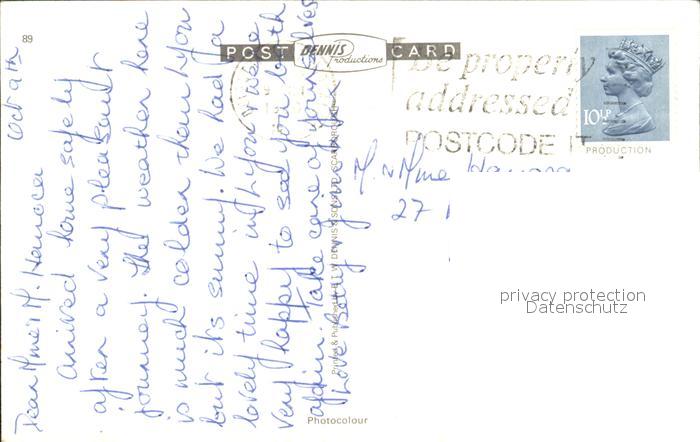 89
POST DENNIS Productions CARD
Be properly
addressed
POSTCODE IT
10½P
PRODUCTION
Oct 9th
Dear Mme & M.
arrived home safely
after a very pleasant
journey. The weather here
is much colder than you
but its sunny. We had a
lovely time with you & were
very happy to see you both
again. Take care of yourselves
Love Betty
M & Mme
27
privacy protection
Datenschutz
Printed & Published by E.T.W. DENNIS & SONS LTD., SCARBOROUGH
Photocolour